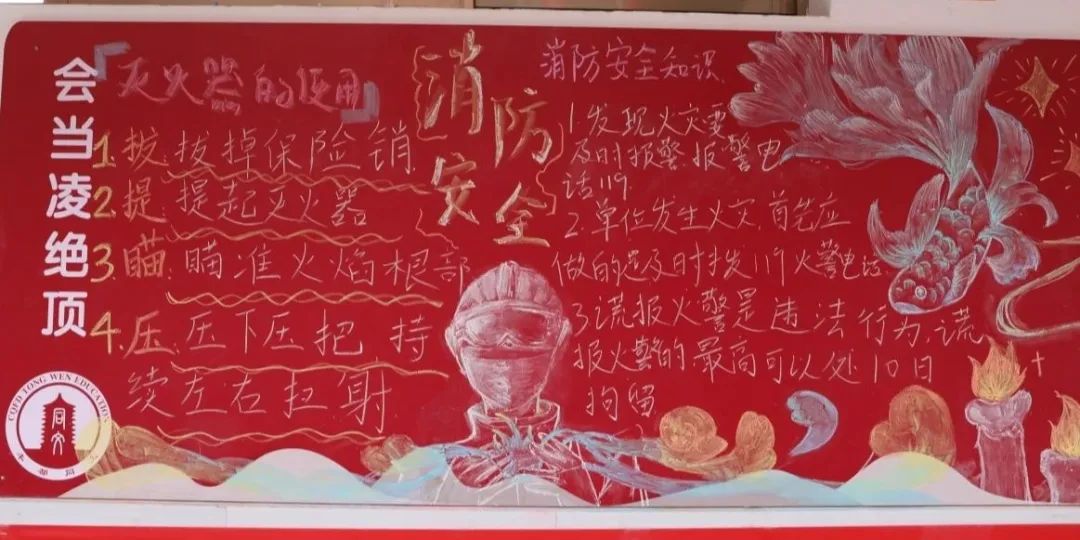 会当凌绝顶
「灭火器的使用」
1.拔:拔掉保险销
2.提:提起灭火器
3.瞄:瞄准火焰根部
4.压:压下压把 持
续左右扫射
消防
安全
消防安全知识
1.发现火灾要
及时报警报警电
话119.
2.单位发生火灾,首先应
做的是及时拨119火警电话
3.谎报火警是违法行为,谎
报火警的最高可以处10日
拘留
TONG WEN EDUCATION
同文